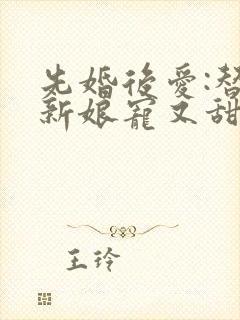 先婚後愛:替
新娘寵又甜
王玲